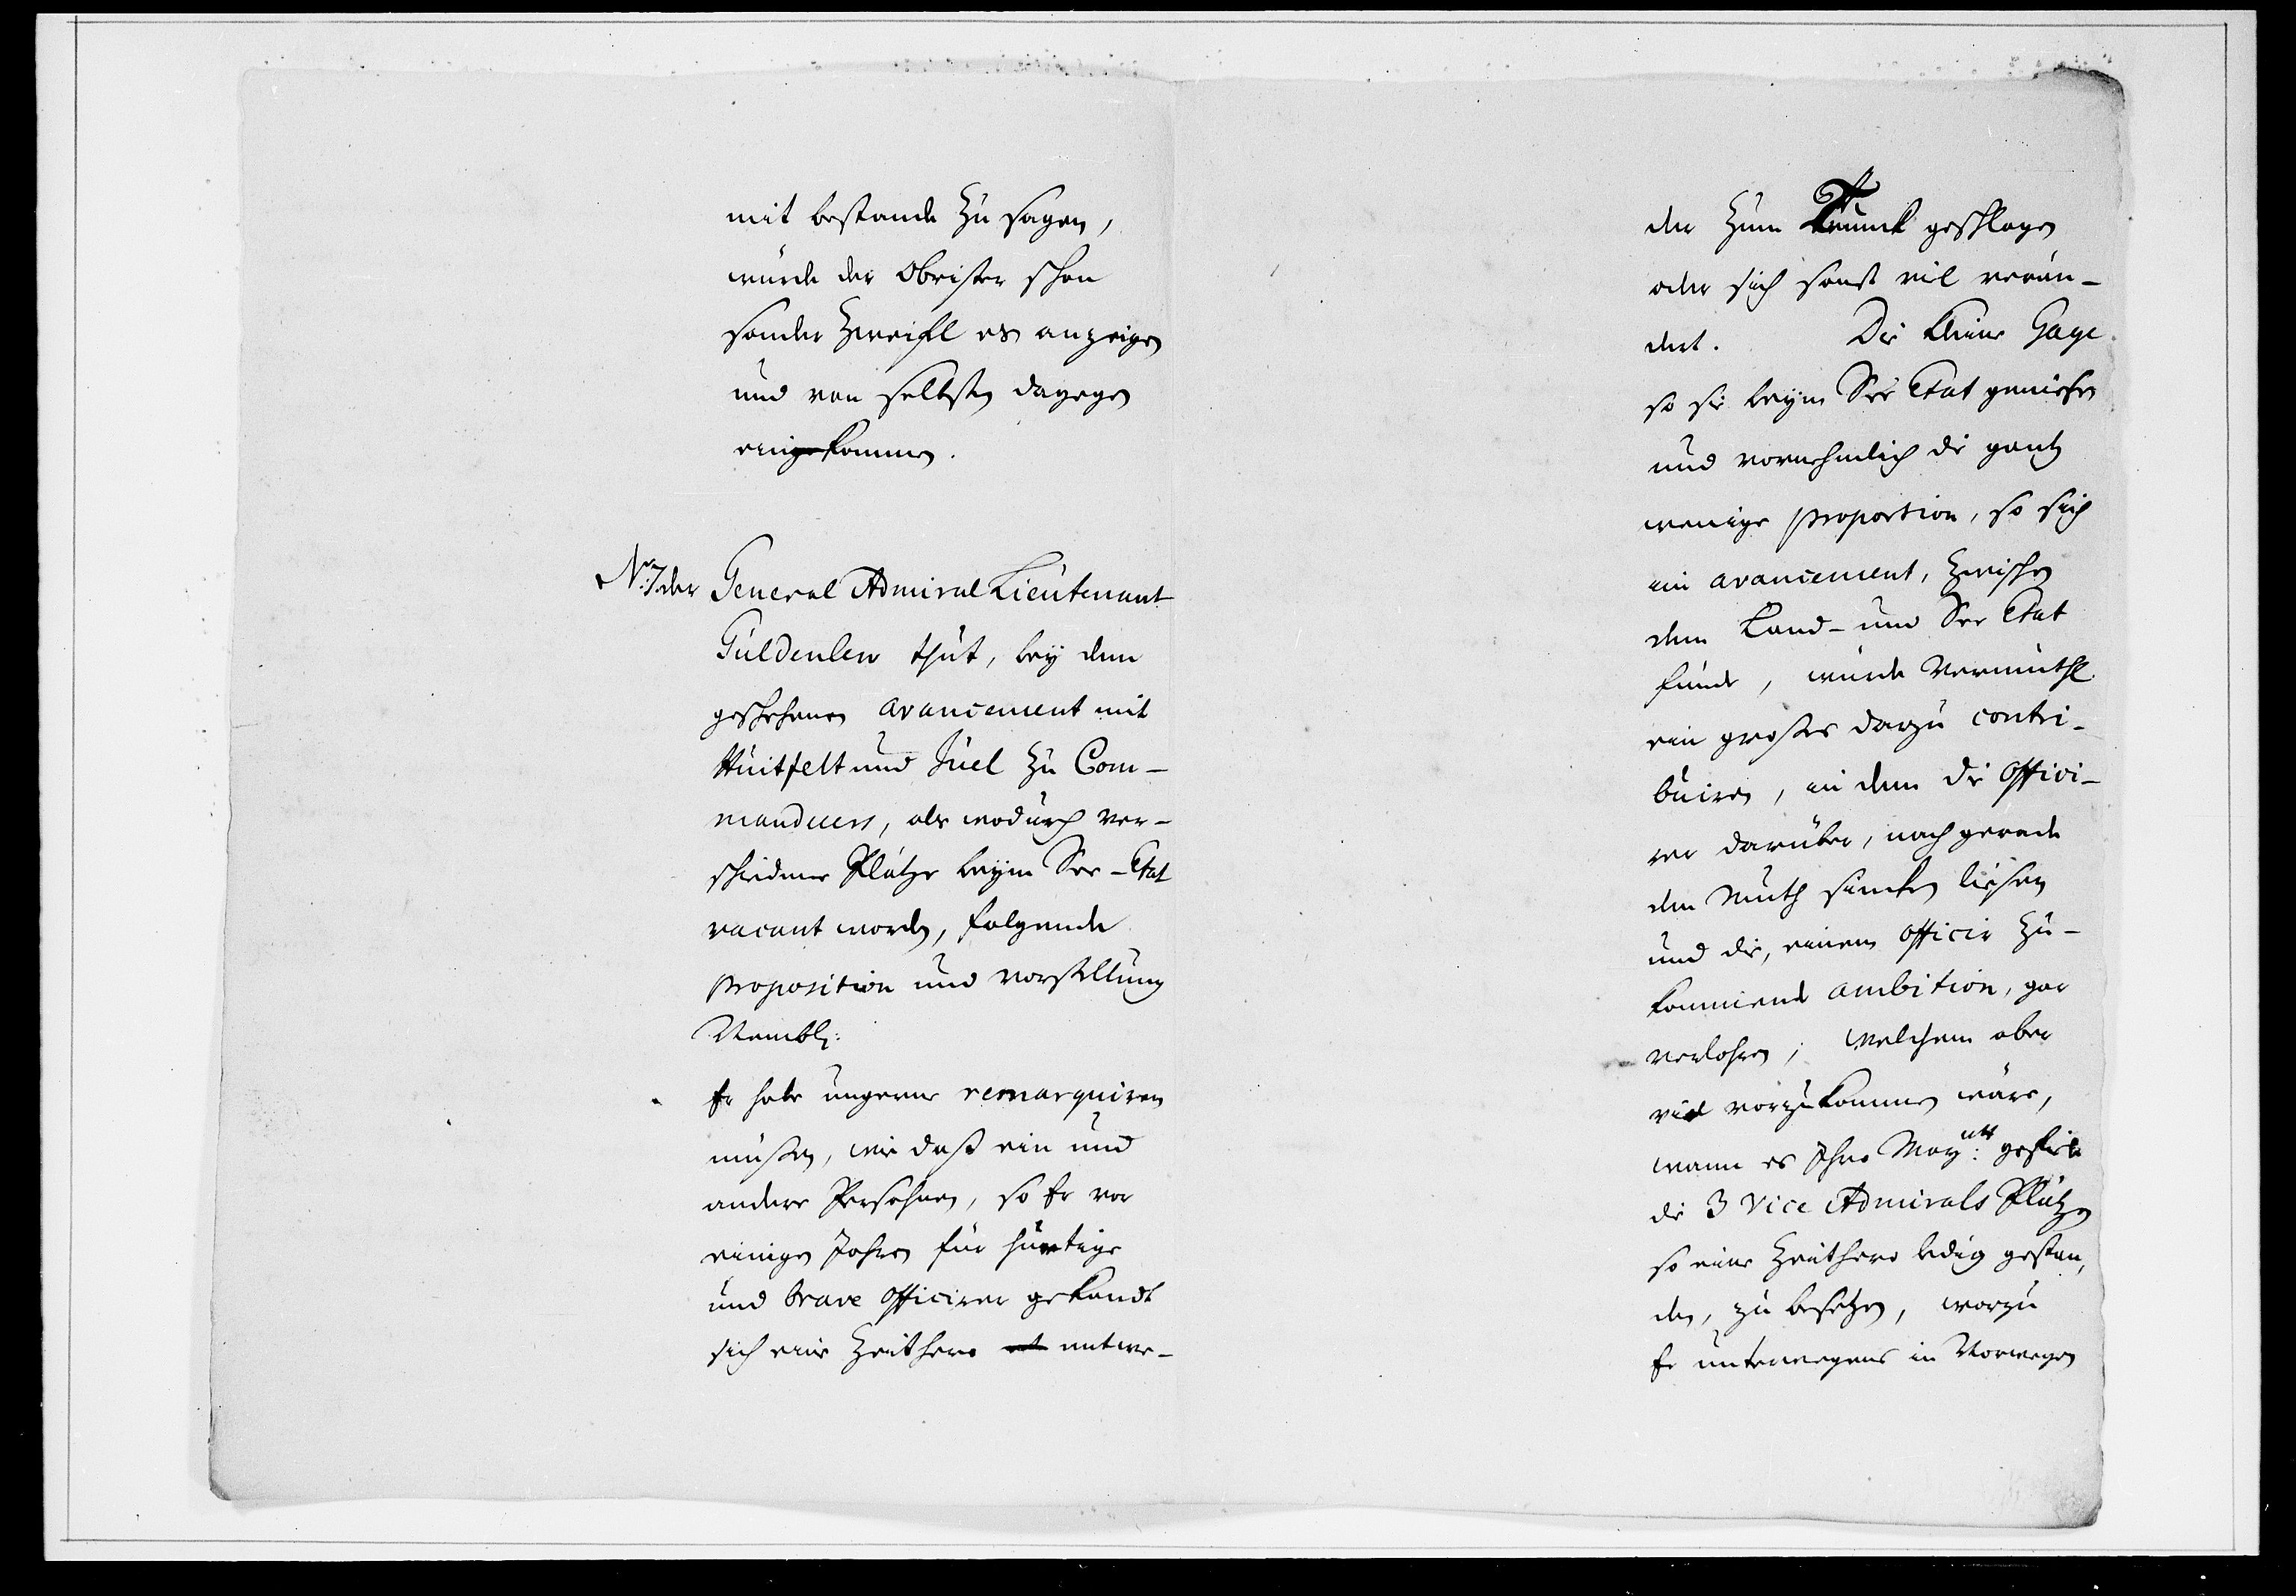 mit bestande zu sagen,
würde der Obrister schon
sonder Zweifl es anzeigen
und von selbsten dagegen
einkommen.
No: 7. der General Admiral Lieutenant
Güldenlew thut, bey dem
geschehenen avancement mit
Huitfelt und Juel zu Com-
mandeurs, als wodurch ver-
schiedene Plätze beym See-Etat
vacant worden, folgende
proposition und vorstellung
Nembl:
Er habe ungerne remarquiren
müßen, wie daß ein und
andere Persohnen, so Er vor
einigen Jahren für hurtige
und brave Officirer gekandt
sich eine Zeithero entwe-
der zum Trunck geschlagen
oder sich sonst viel verän-
dert. Die kleine Gage
so sie beym See Etat genießen
und vornehmlich die gantz
wenige proportion, so sich
im avancement, zwischen
dem Land- und See Etat
fünde, würde vermuthl.
ein großes darzu contri-
buiren, in dem die Offici-
rer darüber, nach gerade
den Muth sincken ließen
und die, einem Officir zu-
kommende ambition, gar
verlohren; welchem aber
viel vorzukommen wäre,
wann es Ihro May:tt gefiele
die 3 Vice Admirals Plätze
so eine Zeithero ledig gestan,
den, zu besetzen, worzu
Er unterwegens in Norwegen